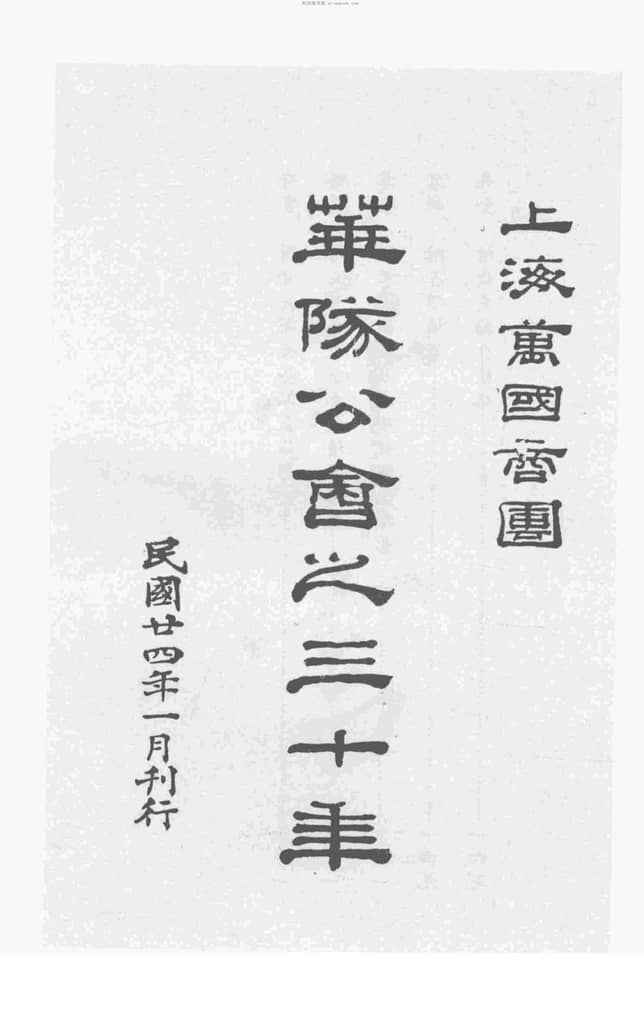 上海萬國商團
華隊公會之三十年
民國廿四年一月刊行